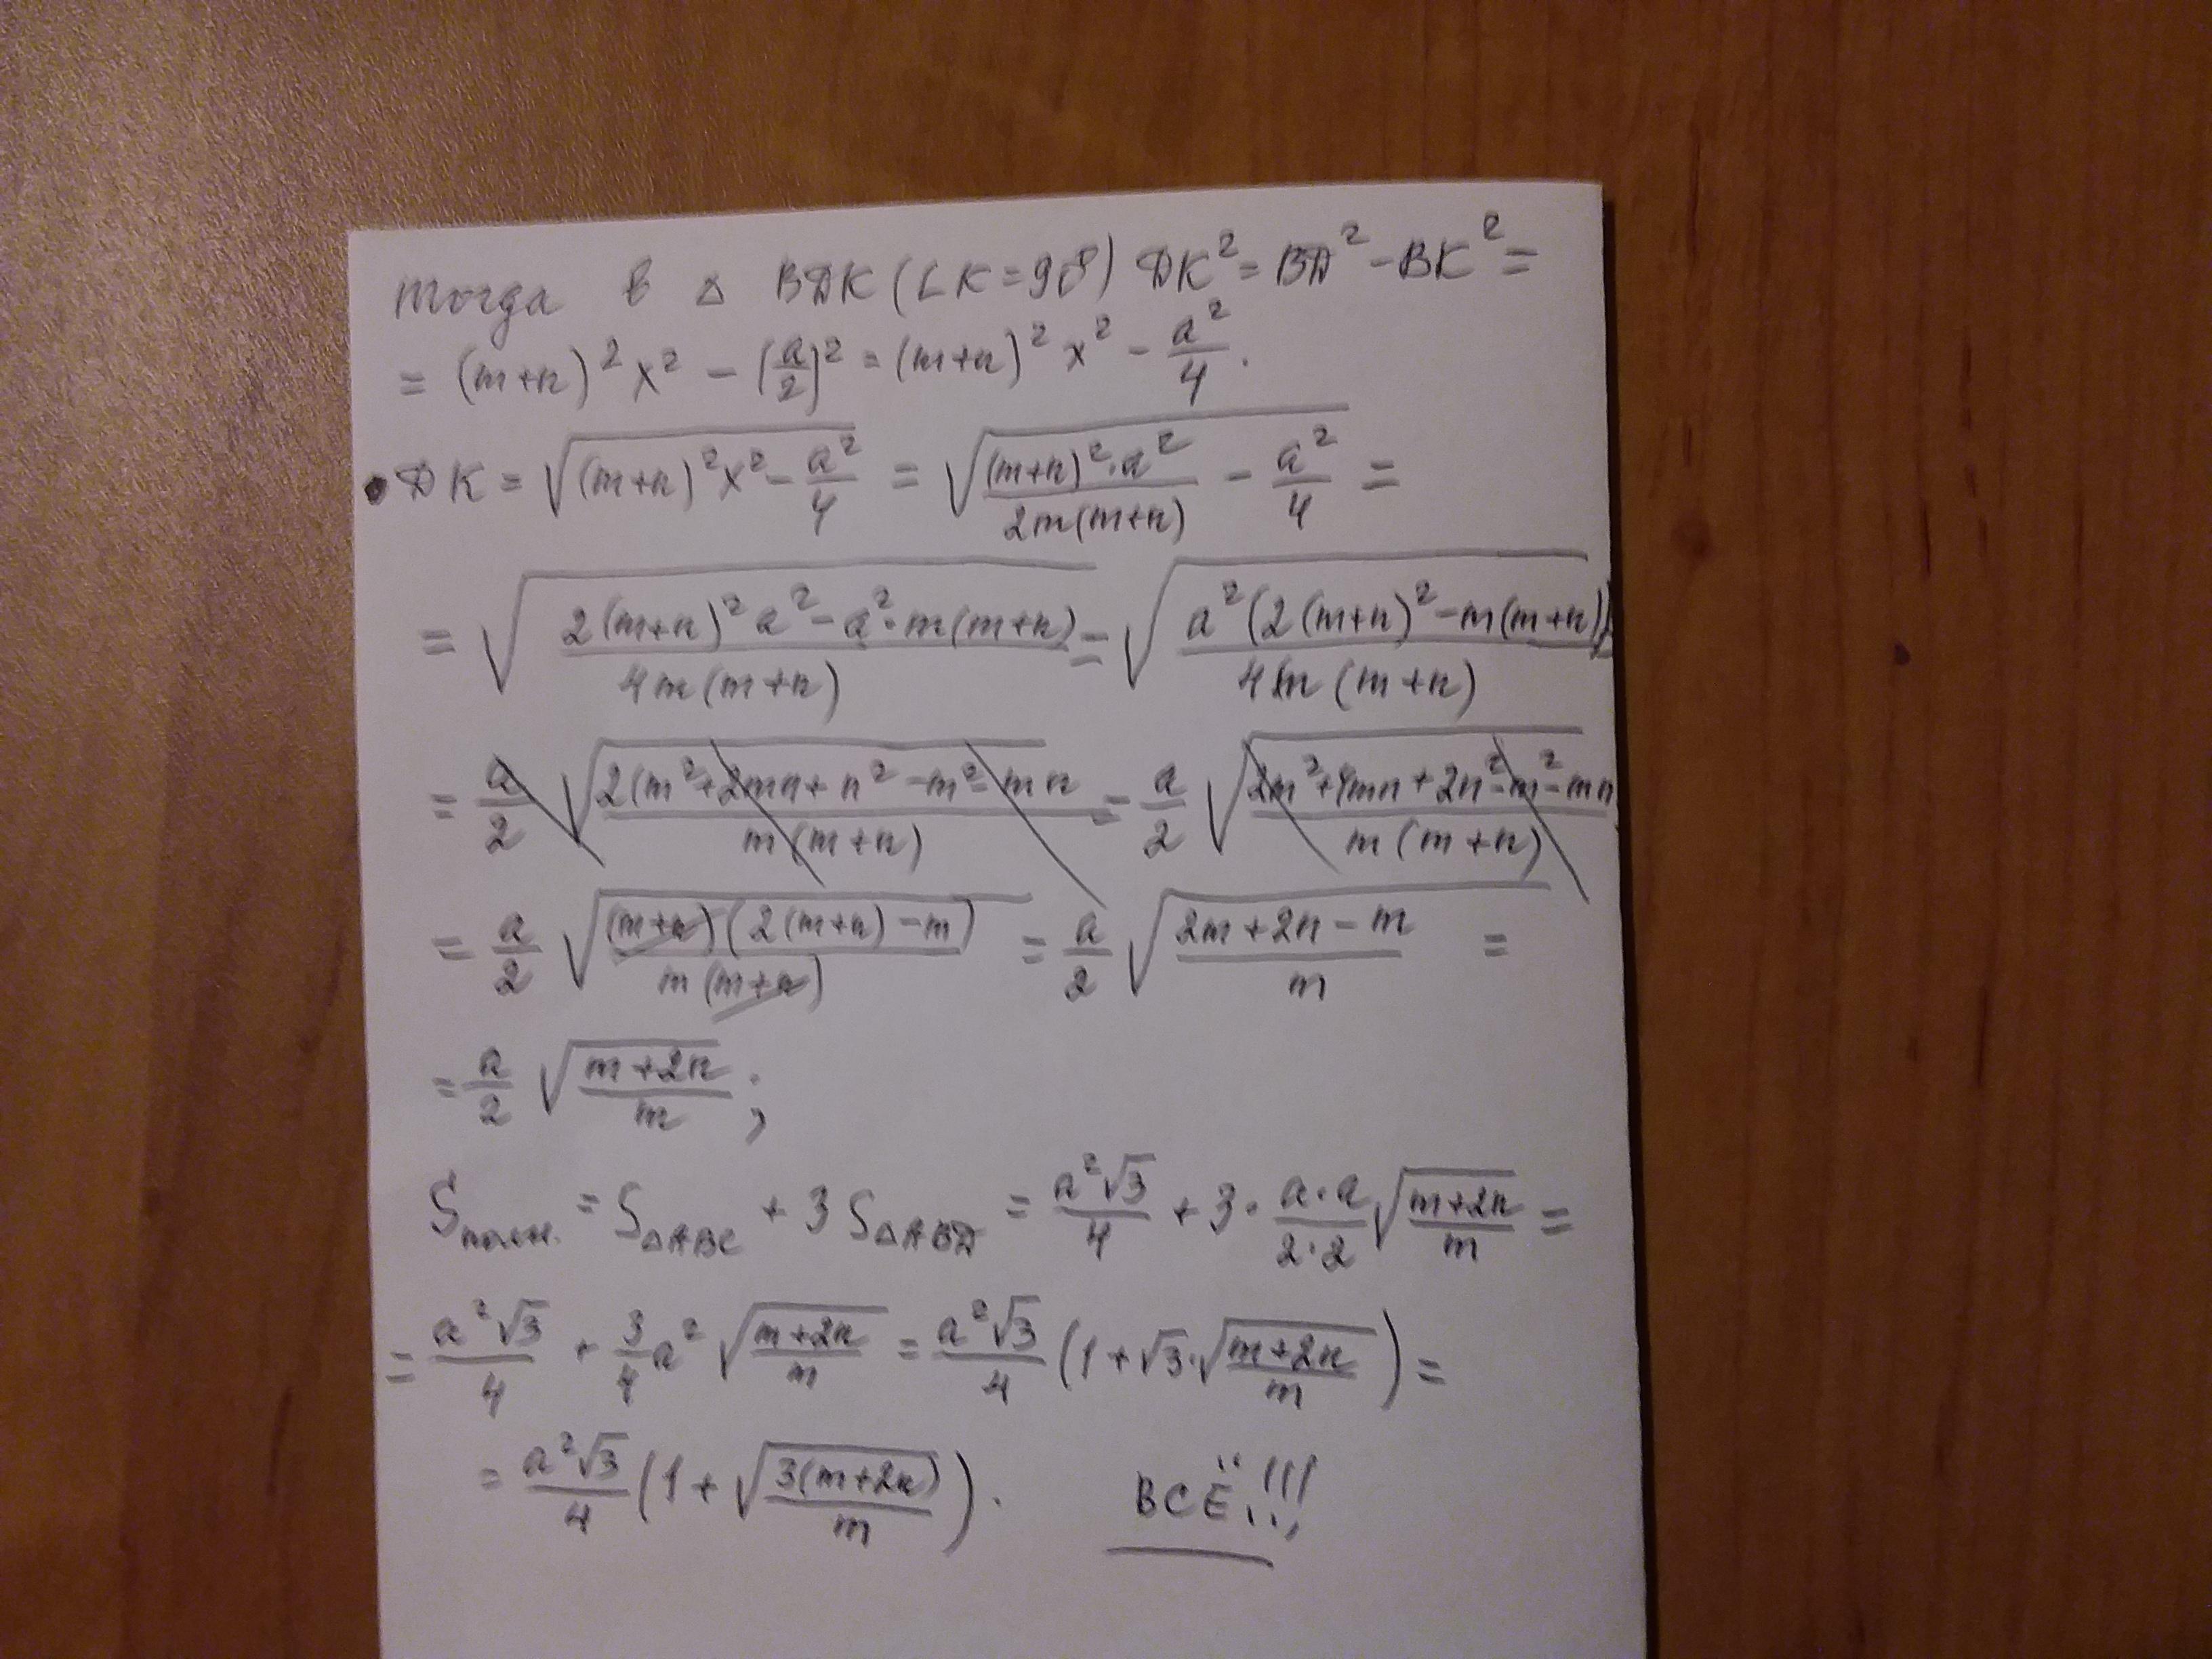 тогда в △ BДK (∠K=90°) ДK² = BД² - BK² =
= (m+n)²x² - (a/2)² = (m+n)²x² - a²/4.
• ДK = √((m+n)²x² - a²/4) = √((m+n)²·a²/(2m(m+n)) - a²/4) =
= √((2(m+n)²a² - a²·m(m+n))/(4m(m+n))) = √(a²(2(m+n)² - m(m+n))/(4m(m+n)))
= a/2 √((2(m²+2mn+n² - m² - mn)/(m(m+n))) = a/2 √((2m²+4mn+2n² - m² - mn)/(m(m+n)))
= a/2 √((m+n)(2(m+n) - m)/(m(m+n))) = a/2 √((2m+2n - m)/m) =
= a/2 √((m+2n)/m);
Sполн. = S△ABC + 3 S△ABД = a²√3/4 + 3· (a·a)/(2·2) √((m+2n)/m) =
= a²√3/4 + 3/4 a² √((m+2n)/m) = a²√3/4 (1+√3·√((m+2n)/m)) =
= a²√3/4 (1 + √(3(m+2n)/m)). ВСЁ!!!